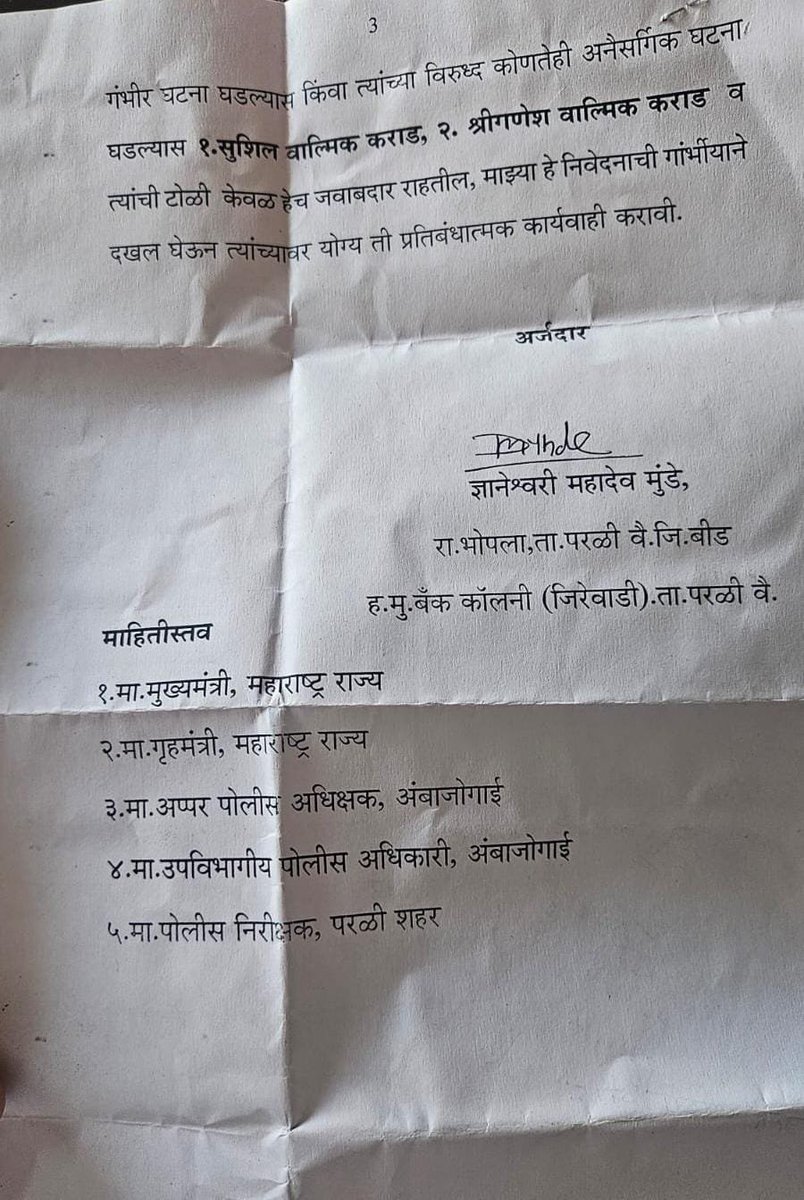 3
गंभीर घटना घडल्यास किंवा त्यांच्या विरुध्द कोणतेही अनैसर्गिक घटना
घडल्यास १.सुशिल वाल्मिक कराड, २. श्रीगणेश वाल्मिक कराड व
त्यांची टोळी केवळ हेच जवाबदार राहतील, माझ्या हे निवेदनाची गांर्भीयाने
दखल घेऊन त्यांच्यावर योग्य ती प्रतिबंधात्मक कार्यवाही करावी.
अर्जदार
ज्ञानेश्वरी महादेव मुंडे,
रा.भोपला,ता.परळी वै.जि.बीड
ह.मु.बँक कॉलनी (जिरेवाडी).ता.परळी वै.
माहितीस्तव
१.मा.मुख्यमंत्री, महाराष्ट्र राज्य
२.मा.गृहमंत्री, महाराष्ट्र राज्य
३.मा.अप्पर पोलीस अधिक्षक, अंबाजोगाई
४.मा.उपविभागीय पोलीस अधिकारी, अंबाजोगाई
५.मा.पोलीस निरीक्षक, परळी शहर